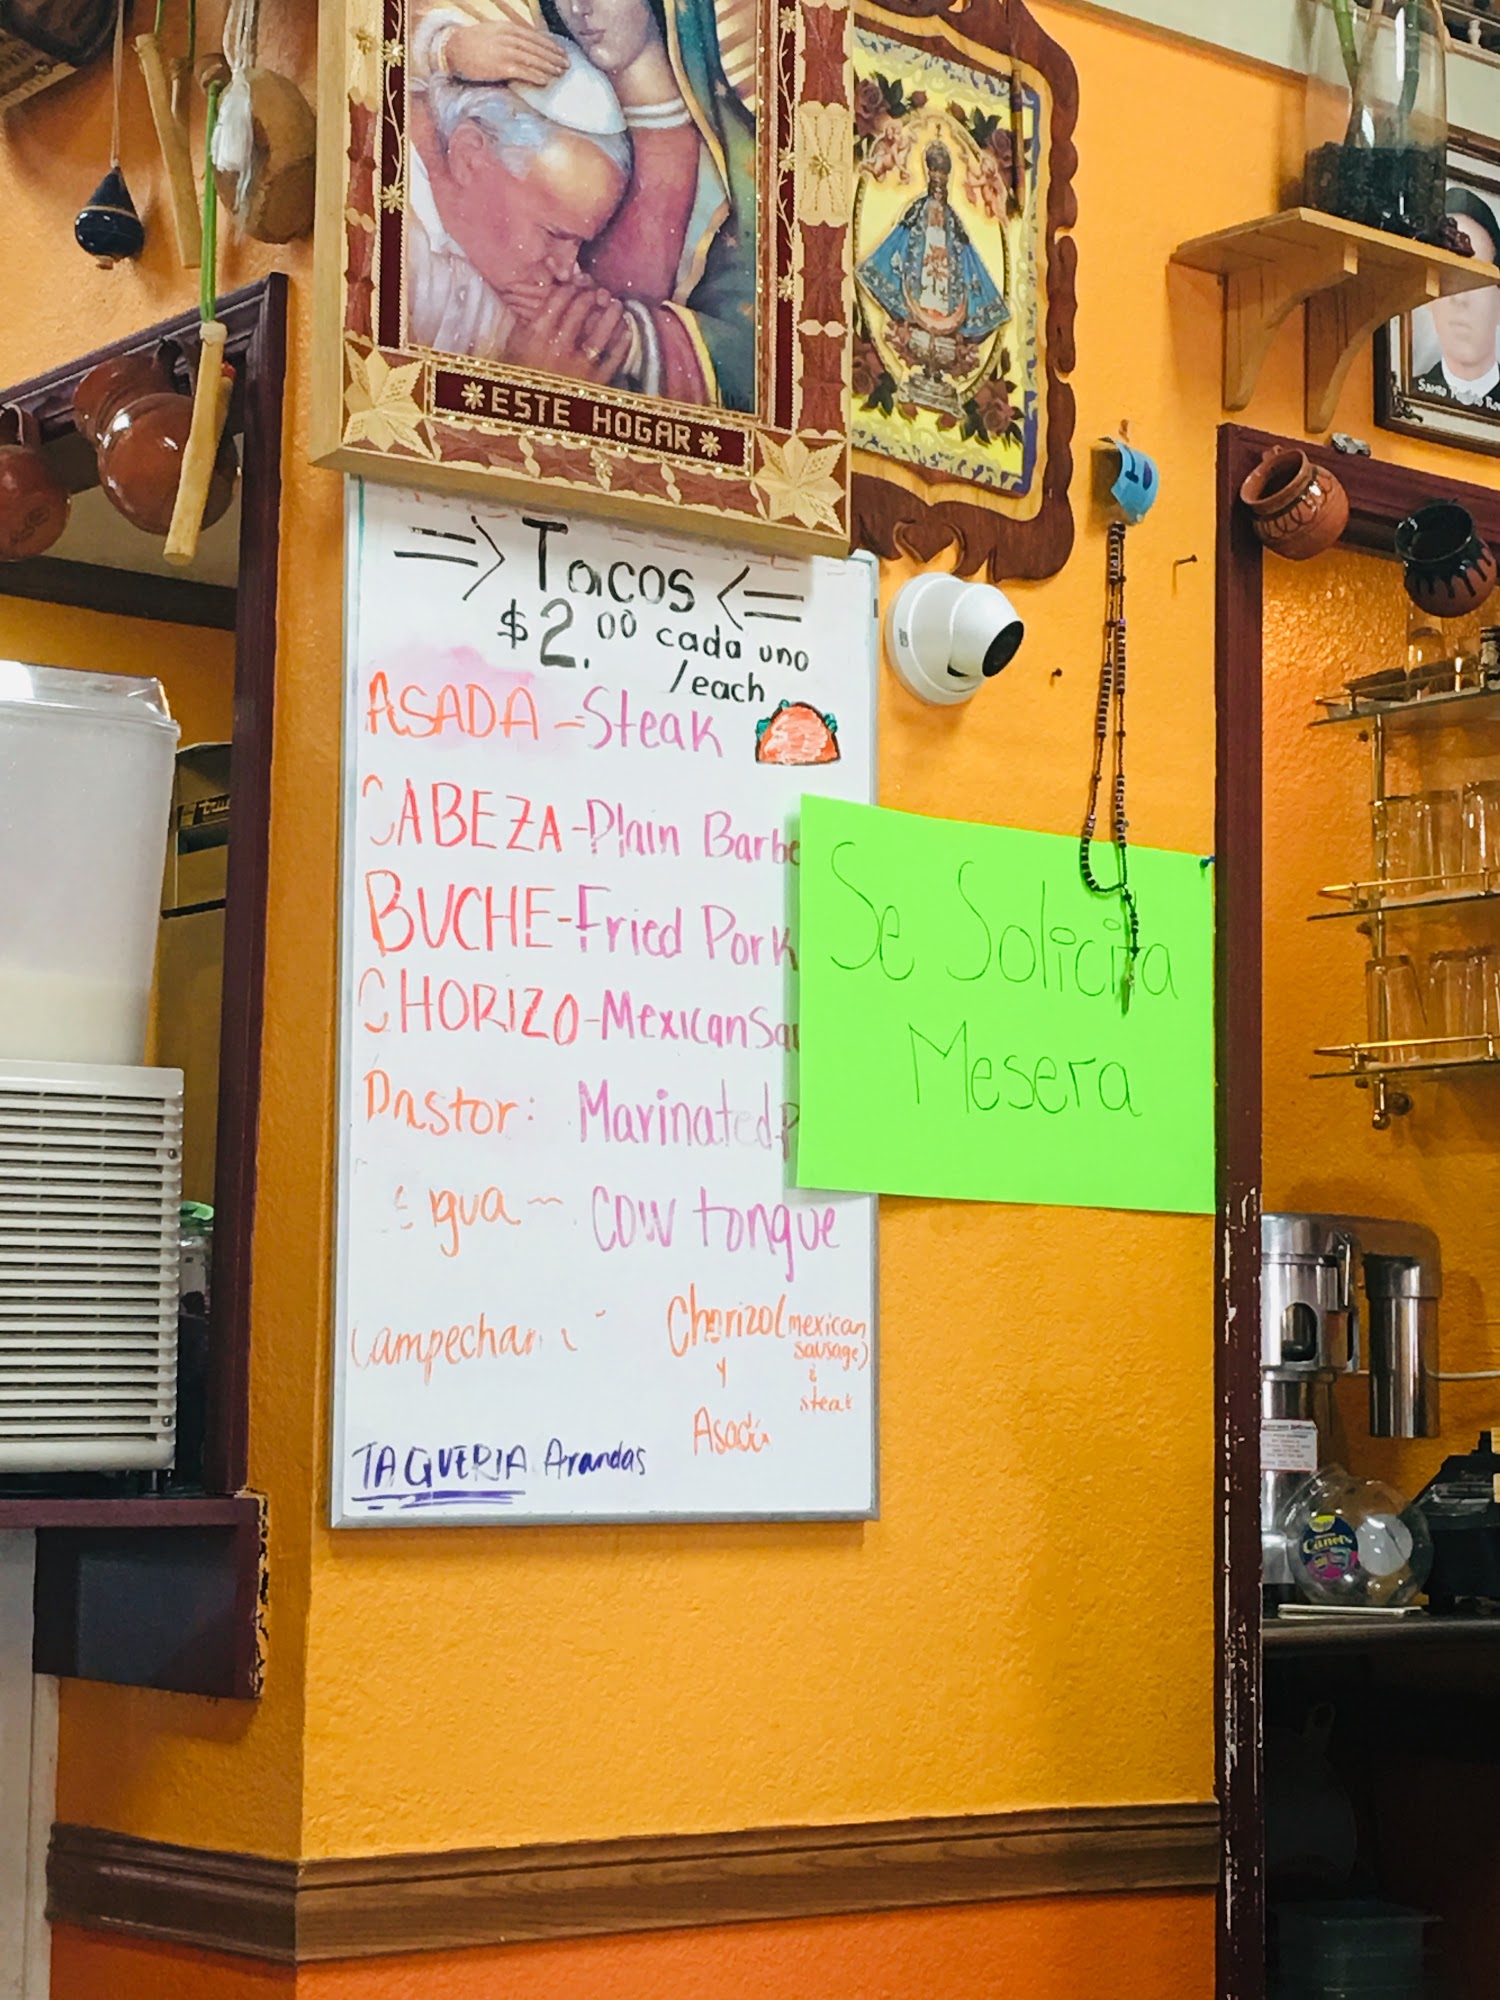 *ESTE HOGAR*
=> Tacos <=
$2.00 cada uno
/each
ASADA - Steak
CABEZA - Plain Barbe
BUCHE - Fried Pork
CHORIZO - Mexican Sau
Pastor: Marinated P
Cow tongue
Campechan
Chorizo (mexican
sausage)
y &
steak
Asada
TAQUERIA Arandas
Se Solicita
Mesera
Santo